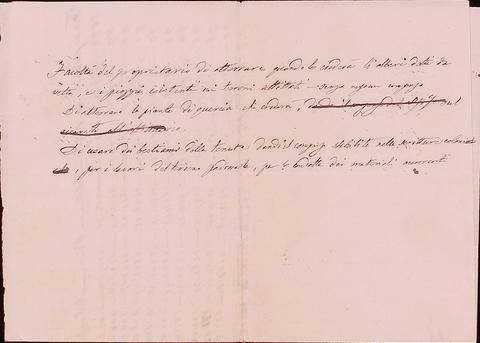 Facoltà del proprietario di atterrare quando lo crederà li alberi detti da
vita, e i pioppi esistenti nei terreni affittati senza nessun compenso
Di atterrare le piante di quercia che crederà,
Di usare dei bestiami della tenuta dandoli il compenso stabilito nelle scritture coloniche
, per i lavori del terreno padronale, per le condotte dei materiali occorrenti